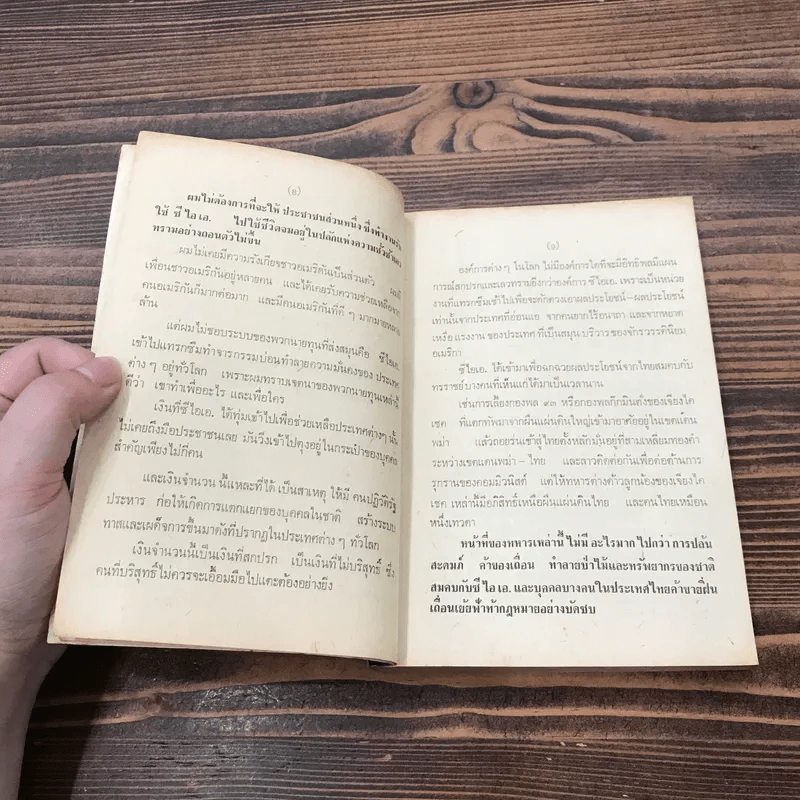 (๏)
ผมไม่ต้องการที่จะให้ ประชาชนส่วนหนึ่ง ซึ่งทำงานรับ
ใช้ ซี ไอ เอ. ไปใช้ชีวิตจมอยู่ในปลักแห่งความชั่วช้าเลว
ทรามอย่างถอนตัวไม่ขึ้น
ผมไม่เคยมีความรังเกียจชาวอเมริกันเป็นส่วนตัว ผมมี
เพื่อนชาวอเมริกันอยู่หลายคน และได้เคยรับความช่วยเหลือจาก
คนอเมริกันก็มากต่อมาก และมีคนอเมริกันที่ดี ๆ มากมายหลาย
ล้าน
แต่ผมไม่ชอบระบบของพวกนายทุนที่ส่งสมุนคือ ซีไอเอ.
เข้าไปแทรกซึมทำจารกรรมบ่อนทำลายความมั่นคงของ ประเทศ
ต่าง ๆ อยู่ทั่วโลก เพราะผมทราบเจตนาของพวกนายทุนเหล่านี้
ดีว่า เขาทำเพื่ออะไร และเพื่อใคร
เงินที่ซีไอเอ. ได้ทุ่มเข้าไปเพื่อช่วยเหลือประเทศต่างๆ นั้น
ไม่เคยถึงมือประชาชนเลย มันวิ่งเข้าไปตุงอยู่ในกระเป๋าของบุคคล
สำคัญเพียงไม่กี่คน
และเงินจำนวน นี้แหละที่ได้ เป็นสาเหตุ ให้มี คนปฏิวัติรัฐ
ประหาร ก่อให้เกิดการแตกแยกของบุคคลในชาติ สร้างระบบ
ทาสและเผด็จการขึ้นมาดังที่ปรากฏในประเทศต่าง ๆ ทั่วโลก
เงินจำนวนนี้เป็นเงินที่สกปรก เป็นเงินที่ไม่บริสุทธิ์ ซึ่ง
คนที่บริสุทธิ์ ไม่ควรจะเอื้อมมือไปแตะต้องอย่างยิ่ง
(๑)
องค์การต่างๆ ในโลก ไม่มีองค์การใดที่จะมีอิทธิพลมีแผน
การณ์สกปรกและเลวทรามยิ่งกว่าองค์การ ซีไอเอ. เพราะเป็นหน่วย
งานที่แทรกซึมเข้าไปเพื่อจะตักตวงเอาผลประโยชน์–ผลประโยชน์
เท่านั้นจากประเทศที่อ่อนแอ จากคนยากไร้อนาถา และจากหยาด
เหงื่อ แรงงาน ของประเทศ ที่เป็นสมุน บริวาร ของจักรวรรดินิยม
อเมริกา
ซีไอเอ. ได้เข้ามาเพื่อฉกฉวยผลประโยชน์จากไทยสมคบกับ
ทรราชย์บางคนที่เห็นแก่ได้มาเป็นเวลานาน
เช่นการเลี้ยงกองพล ๙๓ หรือกองพลก๊กมินตั๋งของเจียงไค
เชค ที่แตกทัพมาจากผืนแผ่นดินใหญ่เข้ามาอาศัยอยู่ในเขตแดน
พม่า แล้วถอยร่นเข้าสู่ไทยตั้งหลักมั่นอยู่ที่สามเหลี่ยมทองคำ
ระหว่างเขตแดนพม่า–ไทย และลาวติดต่อกันเพื่อต่อต้านการ
รุกรานของคอมมิวนิสต์ แต่ให้ทหารต่างด้าวลูกน้องของเจียงไค
เชค เหล่านี้มีอภิสิทธิ์เหนือผืนแผ่นดินไทย และคนไทยเหมือน
หนึ่งเทวดา
หน้าที่ของทหารเหล่านี้ ไม่มี อะไรมาก ไปกว่า การปล้น
สะดมภ์ ค้าของเถื่อน ทำลายป่าไม้และทรัพยากรของชาติ
สมคบกับซี ไอ เอ. และบุคคลบางคนในประเทศไทยค้าขายฝิ่น
เถื่อนเย้ยฟ้าท้ากฎหมายอย่างบัดซบ